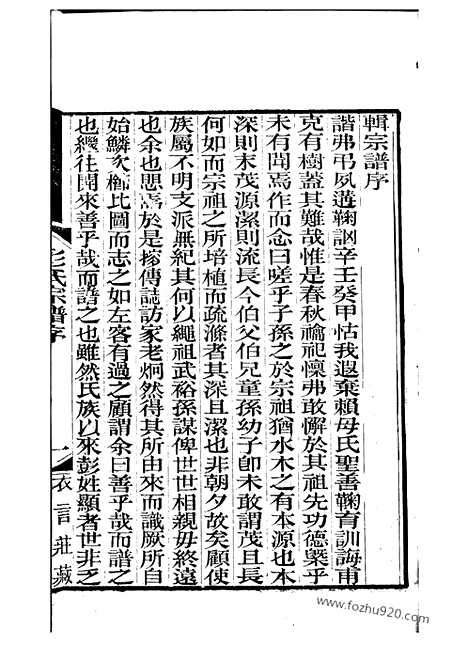 輯宗譜序
諧弗弔夙遘鞠訩辛壬癸甲怙我遐棄賴毋氏聖善鞠育訓誨甫
克有樹蓋其難哉惟是春秋禴祀懍弗敢懈於其祖先功德槩乎
未有聞焉作而念曰嗟乎子孫之於宗祖猶水木之有本源也木
深則末茂源潔則流長今伯父伯兄童孫幼子卽未敢謂茂且長
何如而宗祖之所培植而疏滌者其深且潔也非朝夕故矣顧使
族屬不明支派無紀其何以繩祖武裕孫謀俾世世相親毋終遠
也余也愳焉於是搜傳誌訪家老炯然得其所由來而識厥所自
始鱗次櫛比圖而志之如左客有過之顧謂余曰善乎哉而譜之
也繼往開來善乎哉而譜之也雖然氏族以來彭姓顯者世非乏
彭氏宗譜序
一
衣言莊藏
www.fozhu920.com